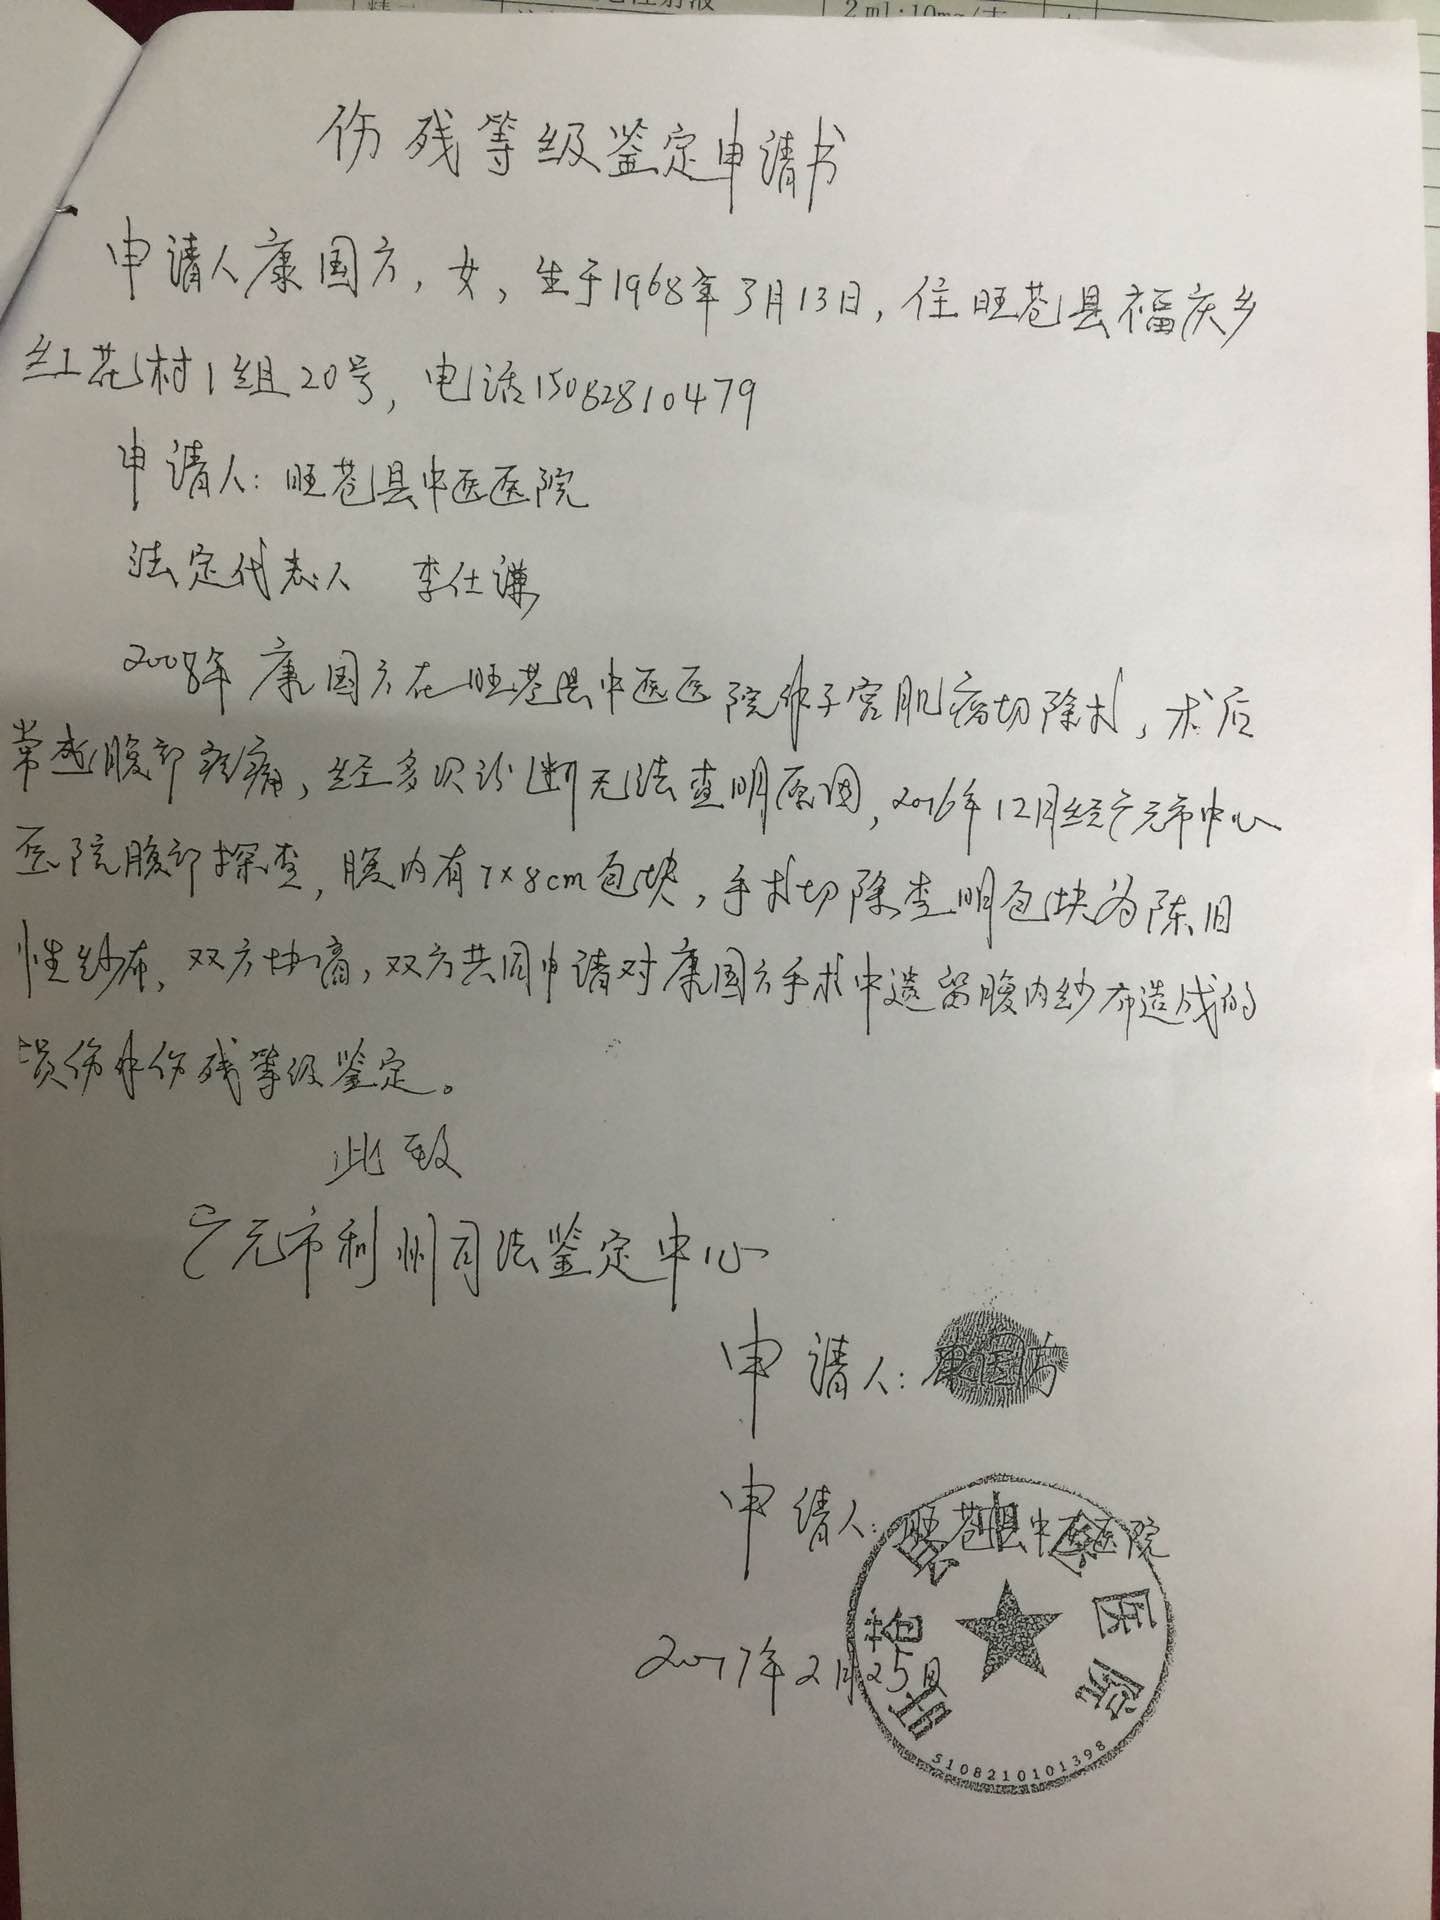 2ml:10mg/支
伤残等级鉴定申请书
申请人康国方,女,生于1968年3月13日,住旺苍县福庆乡
红花村1组20号,电话15082810479
申请人:旺苍县中医医院
法定代表人 李仕谦
2008年康国方在旺苍县中医医院作子宫肌瘤切除术,术后
常感腹部疼痛,经多次诊断无法查明原因,2016年12月经广元市中心
医院腹部探查,腹内有7×8cm包块,手术切除查明包块为陈旧
性纱布,双方协商,双方共同申请对康国方手术中遗留腹内纱布造成的
损伤作伤残等级鉴定。
此致
广元市利州司法鉴定中心
申请人:康国方
申请人:旺苍县中医医院
旺苍县中医医院
2017年2月25日
5108210101398